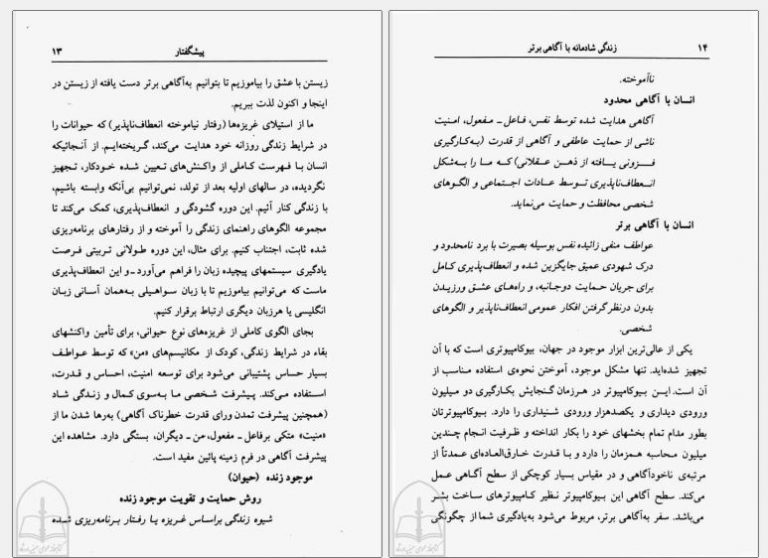 پیشگفتار ۱۳
زیستن با عشق را بیاموزیم تا بتوانیم به‌آگاهی برتر دست یافته از زیستن در
اینجا و اکنون لذت ببریم.
ما از استیلای غریزه‌ها (رفتار نیاموخته انعطاف‌ناپذیر) که حیوانات را
در شرایط زندگی روزانه خود هدایت می‌کند، گریخته‌ایم. از آنجائیکه
انسان با فهرست کاملی از واکنش‌های تعیین شده خودکار، تجهیز
نگردیده، در سالهای اولیه بعد از تولد، نمی‌توانیم بی‌آنکه وابسته باشیم،
با زندگی کنار آئیم. این دوره گشودگی و انعطاف‌پذیری، کمک می‌کند تا
مجموعه الگوهای راهنمای زندگی را آموخته و از رفتارهای برنامه‌ریزی
شده ثابت، اجتناب کنیم. برای مثال، این دوره طولانی تربیتی فرصت
یادگیری سیستمهای پیچیده زبان را فراهم می‌آورد ـ و این انعطاف‌پذیری
ماست که می‌توانیم بیاموزیم تا با زبان سواحیلی به‌همان آسانی زبان
انگلیسی یا هرزبان دیگری ارتباط برقرار کنیم.
بجای الگوی کاملی از غریزه‌های نوع حیوانی، برای تأمین واکنشهای
بقاء در شرایط زندگی، کودک از مکانیسم‌های «من» که توسط عواطف
بسیار حساس پشتیبانی می‌شود برای توسعه امنیت، احساس و قدرت،
استفاده می‌کند. پیشرفت شخصی ما به‌سوی کمال و زندگی شاد
(همچنین پیشرفت تمدن ورای قدرت خطرناک آگاهی) به‌رها شدن ما از
«منیت» متکی برفاعل ـ مفعول، من ـ دیگران، بستگی دارد. مشاهده این
پیشرفت آگاهی در فرم زمینه پائین مفید است.
موجود زنده (حیوان)
روش حمایت و تقویت موجود زنده
شیوه زندگی براساس غریزه یا رفتار برنامه‌ریزی شده
۱۴ زندگی شادمانه با آگاهی برتر
ناآموخته.
انسان با آگاهی محدود
آگاهی هدایت شده توسط نفس، فاعل ـ مفعول، امنیت
ناشی از حمایت عاطفی و آگاهی از قدرت (به‌کارگیری
فزونی یافته از ذهن عقلانی) که ما را به‌شکل
انعطاف‌ناپذیری توسط عادات اجتماعی و الگوهای
شخصی محافظت و حمایت می‌نماید.
انسان با آگاهی برتر
عواطف منفی زائیده نفس بوسیله بصیرت با برد نامحدود و
درک شهودی عمیق جایگزین شده و انعطاف‌پذیری کامل
برای جریان حمایت دوجانبه، و راه‌های عشق ورزیدن
بدون درنظر گرفتن افکار عمومی انعطاف‌ناپذیر و الگوهای
شخصی.
یکی از عالی‌ترین ابزار موجود در جهان، بیوکامپیوتری است که با آن
تجهیز شده‌اید. تنها مشکل موجود، آموختن نحوه‌ی استفاده مناسب از
آن است. این بیوکامپیوتر در هرزمان گنجایش بکارگیری دو میلیون
ورودی دیداری و یکصدهزار ورودی شنیداری را دارد. بیوکامپیوترتان
بطور مدام تمام بخشهای خود را بکار انداخته و ظرفیت انجام چندین
میلیون محاسبه همزمان را دارد و با قدرت خارق‌العاده‌ای عمدتاً از
مرتبه‌ی ناخودآگاهی و در مقیاس بسیار کوچکی از سطح آگاهی عمل
می‌کند. سطح آگاهی این بیوکامپیوتر نظیر کامپیوترهای ساخت بشر
می‌باشد. سفر به‌آگاهی برتر، مربوط می‌شود به‌یادگیری شما از چگونگی